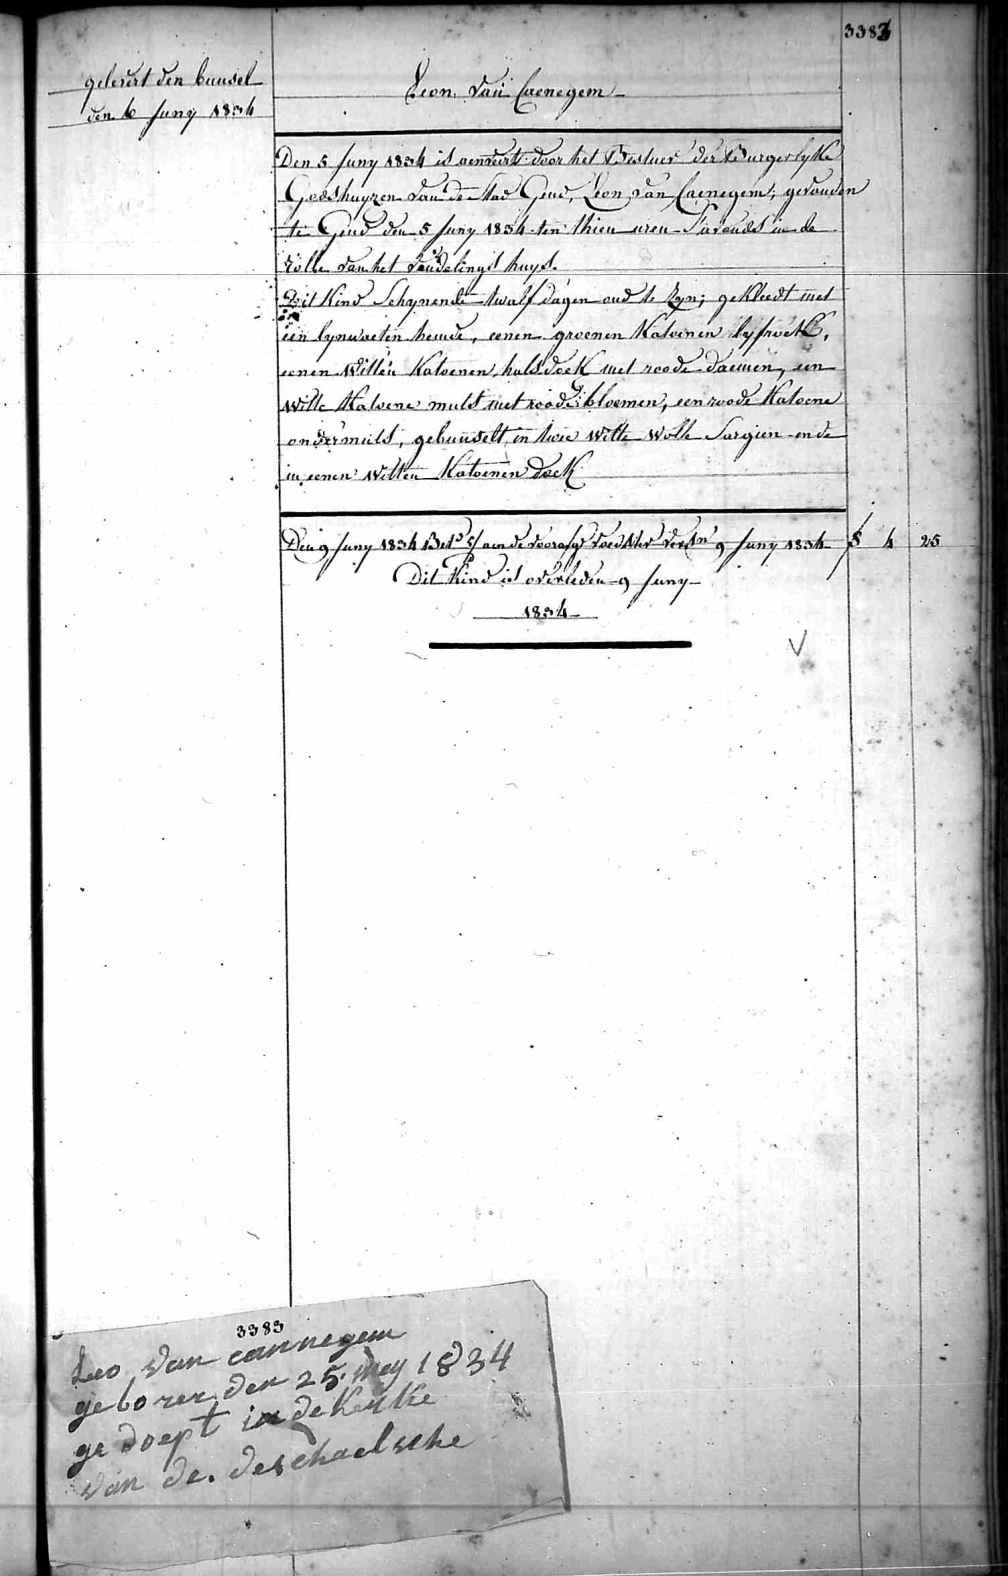 3383
gelevert den bunsel
den 6 Juny 1834
Leon Van Caenegem
Den 5 Juny 1834 is aenveirt door het Bestuer der Burgerlyke
Godshuyzen van de stad Gend, Leon van Caenegem; gevonden
te Gend den 5 Juny 1834 ten thien uren S'avonds in de
rolle van het Vondelings huys.
Dit Kind Schynende twalf dagen oud te Zyn; gekleedt met
een lynwaeten hemde, eenen groenen Katoenen lyfrock,
eenen Witten Katoenen halsdoek met roode daemen, een
Witte Katoene muts met roode bloemen, een roode Katoene
ondermuts, gebunselt in twee Witte Wolle Sargien ende
in eenen Witten Katoenen doek
Den 9 Juny 1834 aen de voedster 9 Juny 1834 4 25
Dit Kind is overleden 9 Juny
1834
3383
Leo Van cannegem
geboren den 25 mey 1834
gedoept in de Kerke
van de. deschaelsche